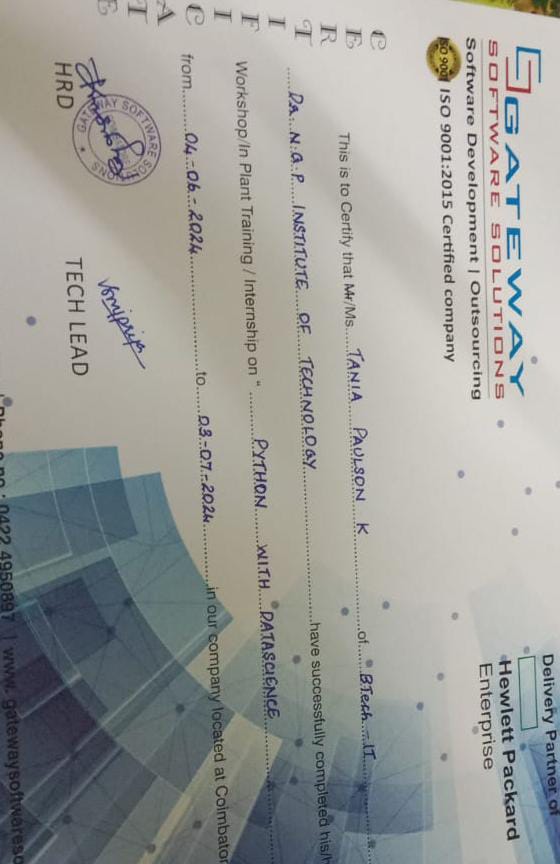 GATEWAY
SOFTWARE SOLUTIONS
Software Development | Outsourcing
ISO 9001 ISO 9001:2015 Certified company
Delivery Partner of
Hewlett Packard
Enterprise
CERTIFICATE
This is to Certify that Mr/Ms. TANIA PAULSON K of BTech - IT
DR. N.G.P INSTITUTE OF TECHNOLOGY have successfully completed his/h
Workshop/In Plant Training / Internship on " PYTHON WITH DATASCIENCE
from 04-06-2024 to 03-07-2024 in our company located at Coimbator
GATEWAY SOFTWARE SOLUTIONS
HRD
TECH LEAD
Phone no : 0422 4950897 | www. gatewaysoftwareso